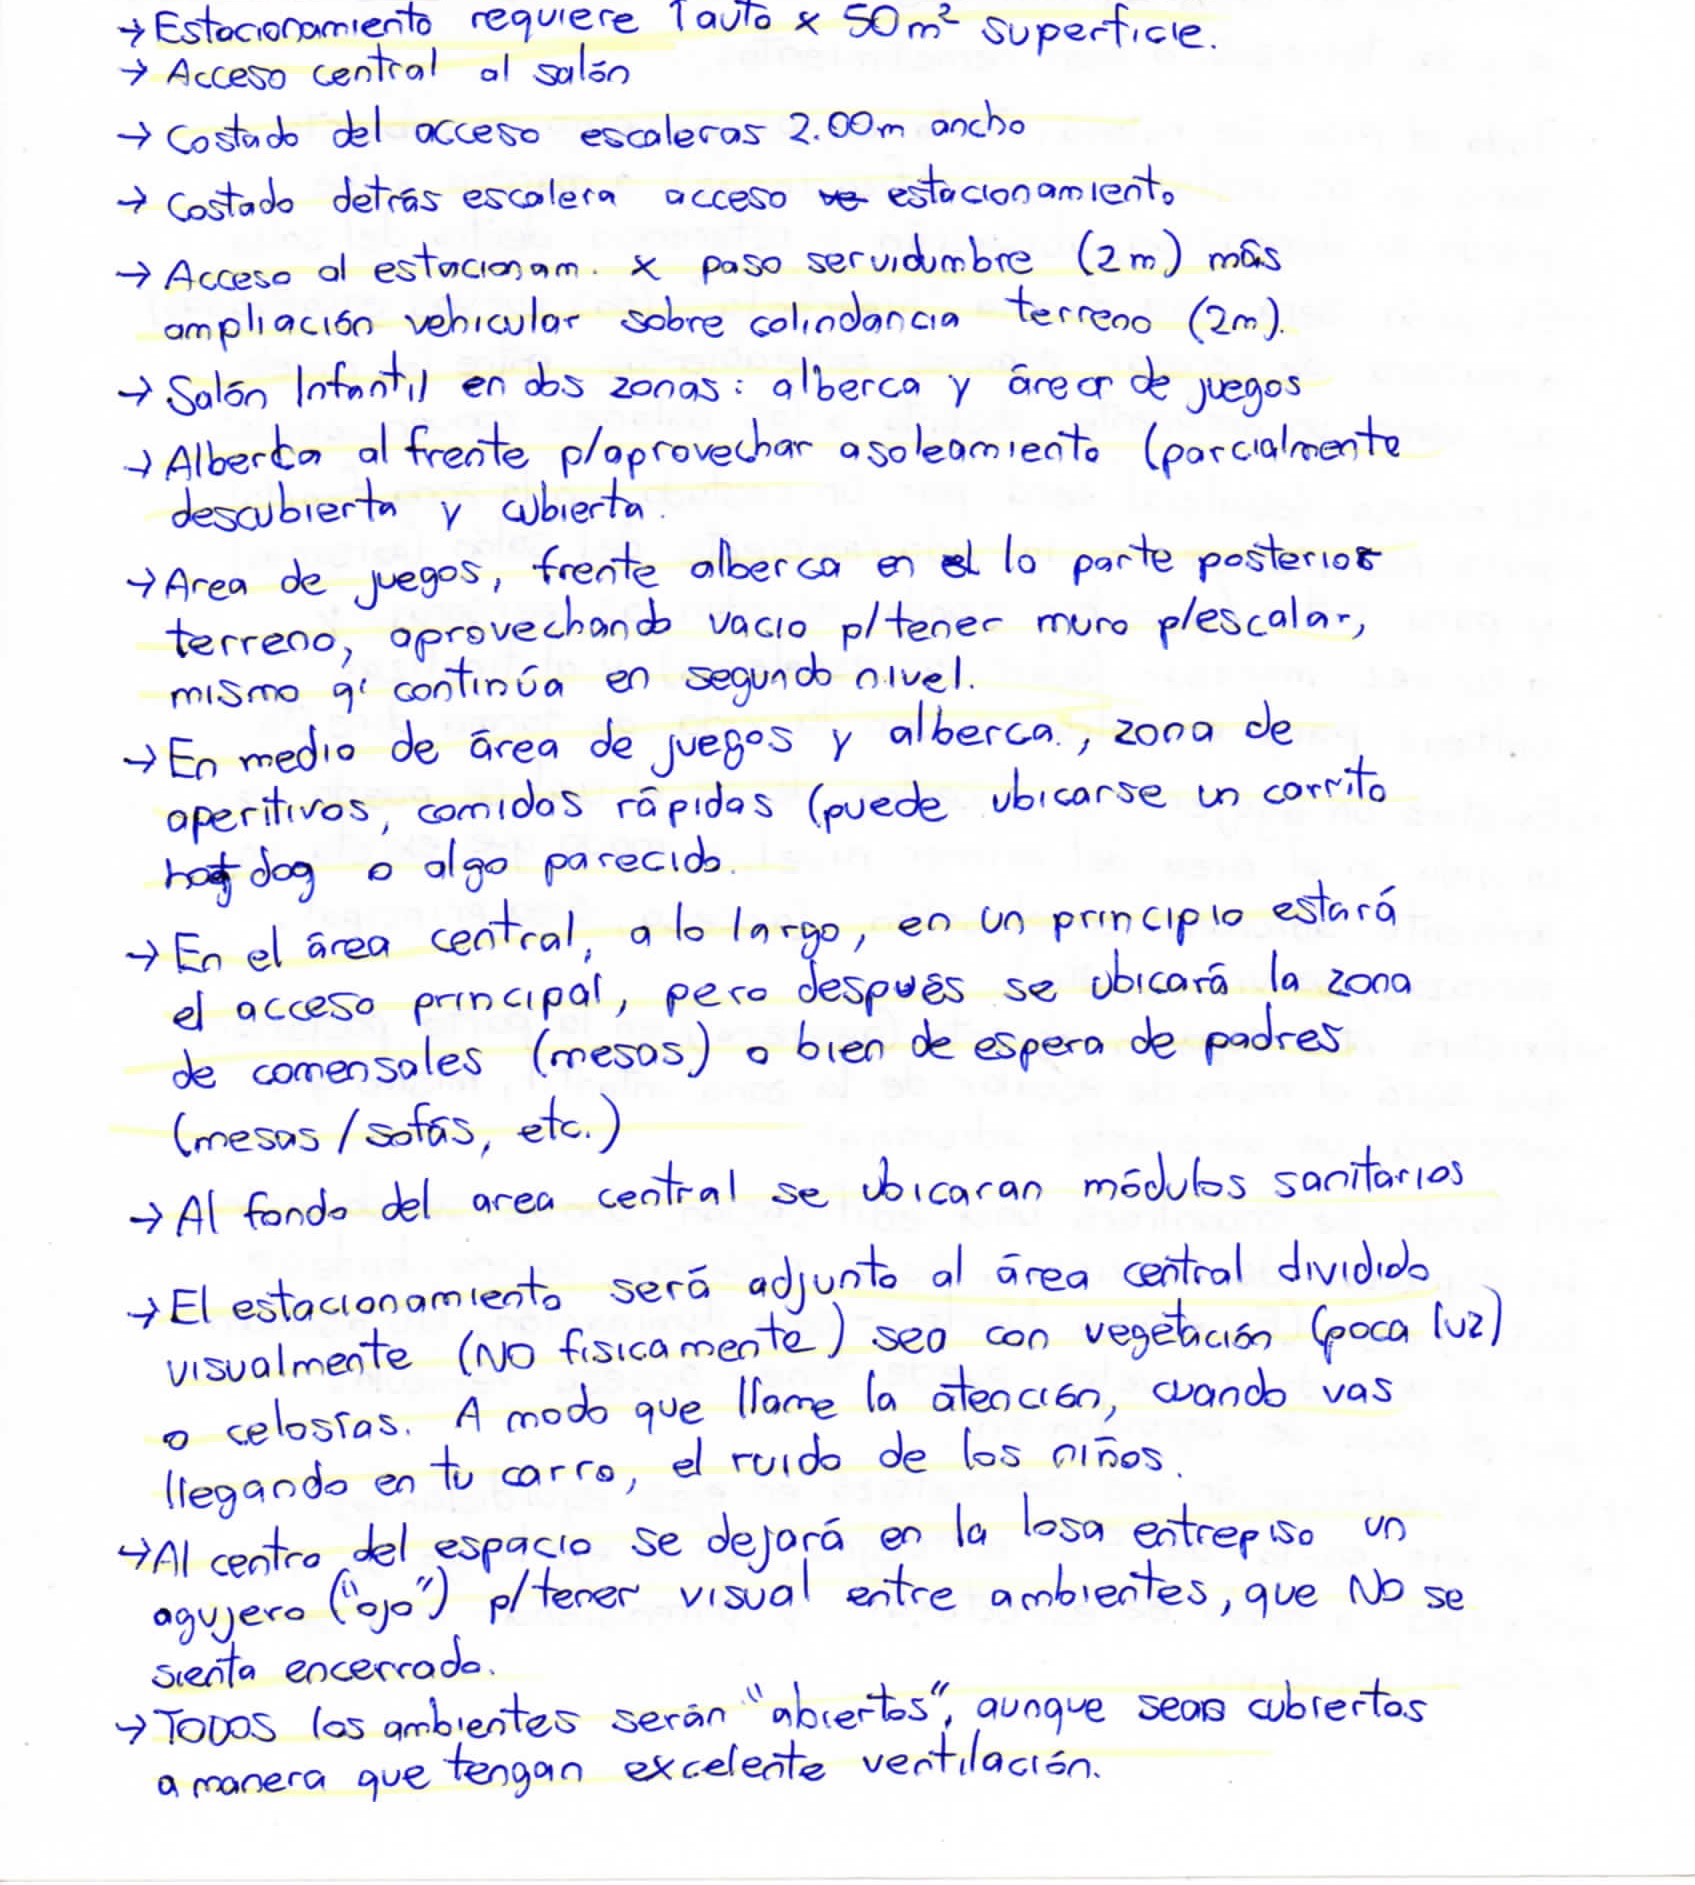 → Estacionamiento requiere 1 auto x 50 m² superficie.
→ Acceso central al salón
→ Costado del acceso escaleras 2.00m ancho
→ Costado detrás escalera acceso estacionamiento
→ Acceso al estacionam. x paso servidumbre (2m) más
ampliación vehicular sobre colindancia terreno (2m).
→ Salón Infantil en dos zonas: alberca y área de juegos
→ Alberca al frente p/aprovechar asoleamiento (parcialmente
descubierta y cubierta.
→ Area de juegos, frente alberca en la parte posterior
terreno, aprovechando vacio p/tener muro p/escalar,
mismo q' continúa en segundo nivel.
→ En medio de área de juegos y alberca, zona de
aperitivos, comidas rápidas (puede ubicarse un carrito
hot dog o algo parecido.
→ En el área central, a lo largo, en un principio estará
el acceso principal, pero después se ubicará la zona
de comensales (mesas) o bien de espera de padres
(mesas/sofás, etc.)
→ Al fondo del area central se ubicaran módulos sanitarios
→ El estacionamiento será adjunto al área central dividido
visualmente (NO fisicamente) sea con vegetación (poca luz)
o celosías. A modo que llame la atención, cuando vas
llegando en tu carro, el ruido de los niños.
→ Al centro del espacio se dejará en la losa entrepiso un
agujero ("ojo") p/tener visual entre ambientes, que NO se
sienta encerrado.
→ TODOS los ambientes serán "abiertos", aunque sean cubiertos
a manera que tengan excelente ventilación.